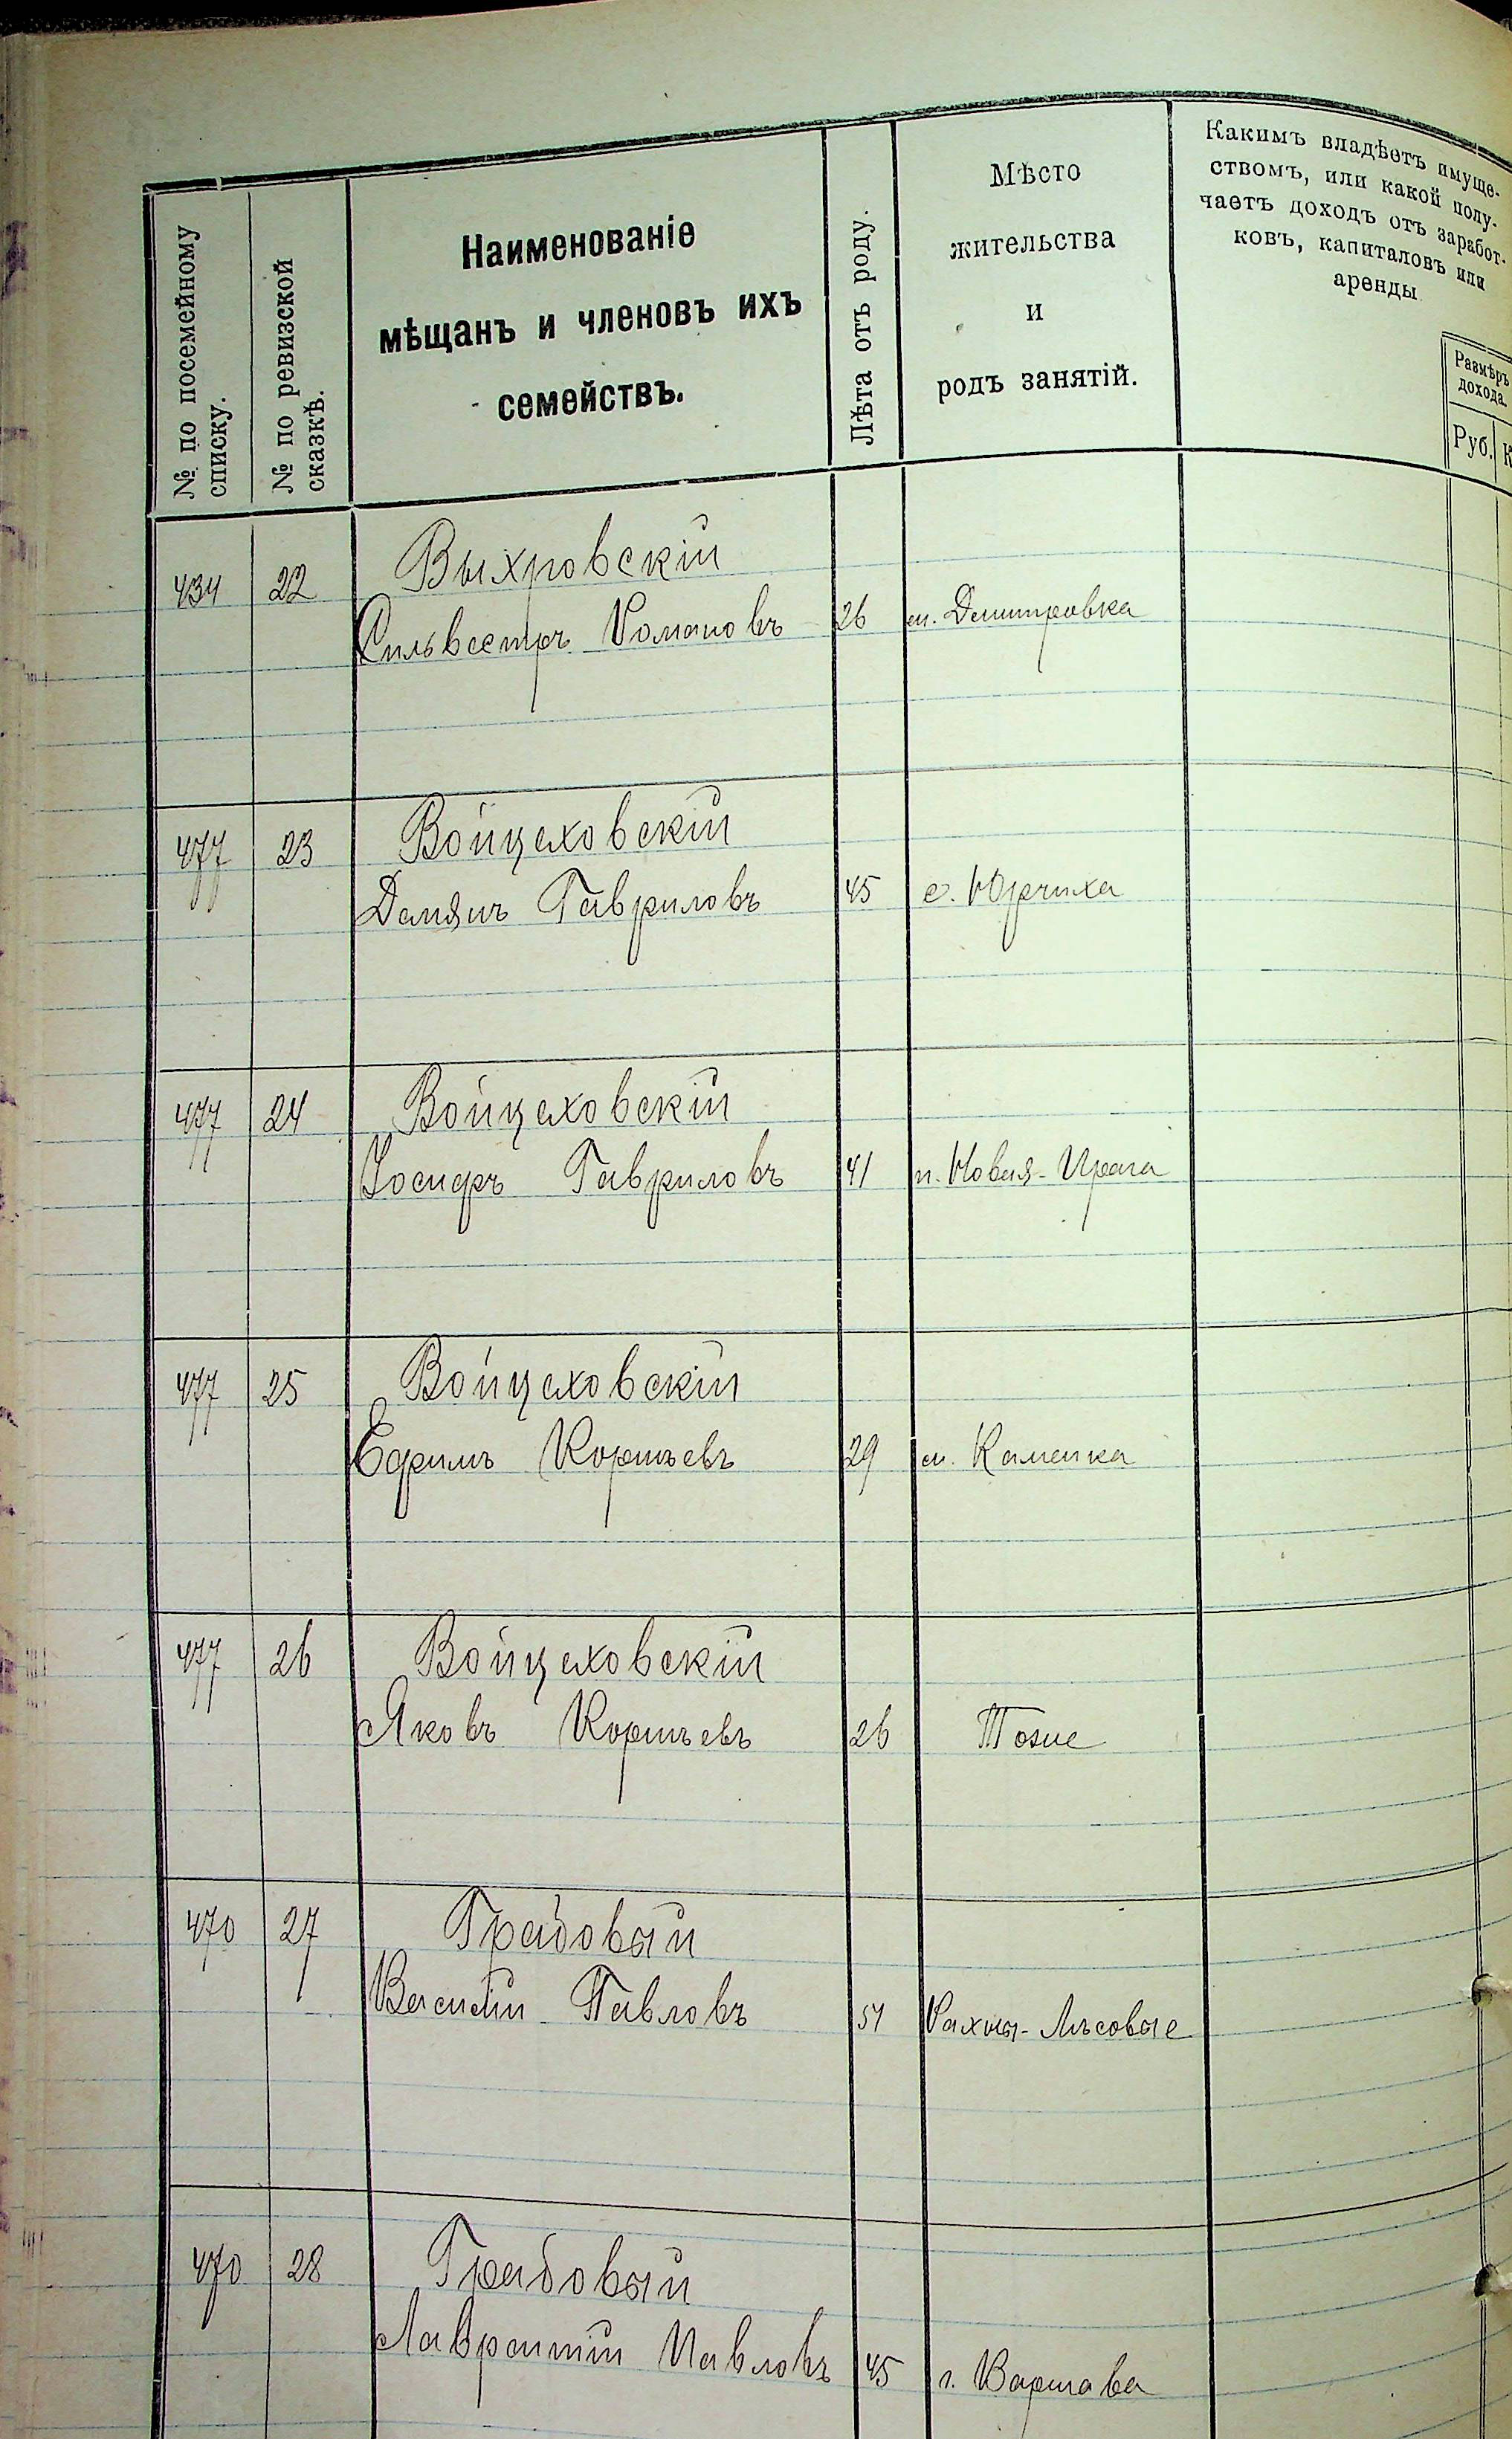 № по посемейному
списку.
№ по ревизской
сказкѣ.
Наименованіе
мѣщанъ и членовъ ихъ
семействъ.
Лѣта отъ роду.
Мѣсто
жительства
и
родъ занятій.
Какимъ владѣетъ имуще-
ствомъ, или какой полу-
чаетъ доходъ отъ заработ-
ковъ, капиталовъ или
аренды
Размѣръ
дохода.
Руб. К
434 22 Выхровскій
Сильвестръ Романовъ 26 м. Дмитровка
477 23 Войцеховскій
Демянъ Гавриловъ 45 с. Юрчиха
477 24 Войцеховскій
Іосифъ Гавриловъ 41 п. Новая-Прага
477 25 Войцеховскій
Ефимъ Корнѣевъ 29 м. Каменка
477 26 Войцеховскій
Яковъ Корнѣевъ 26 Тоже
470 27 Грабовый
Василій Павловъ 51 Рахны-Лѣсовые
470 28 Грабовый
Лаврентій Павловъ 45 г. Варшава